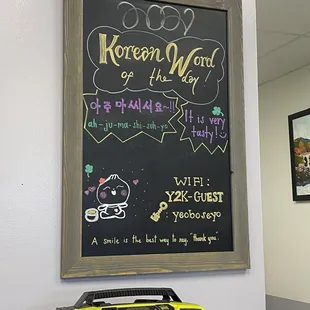 Korean Word
of the day!
아주 마씨서요~!!
ah-ju-ma-shi-suh-yo
It is very
tasty!
WIFI:
Y2K-GUEST
: yeoboseyo
A smile is the best way to say, "thank you".